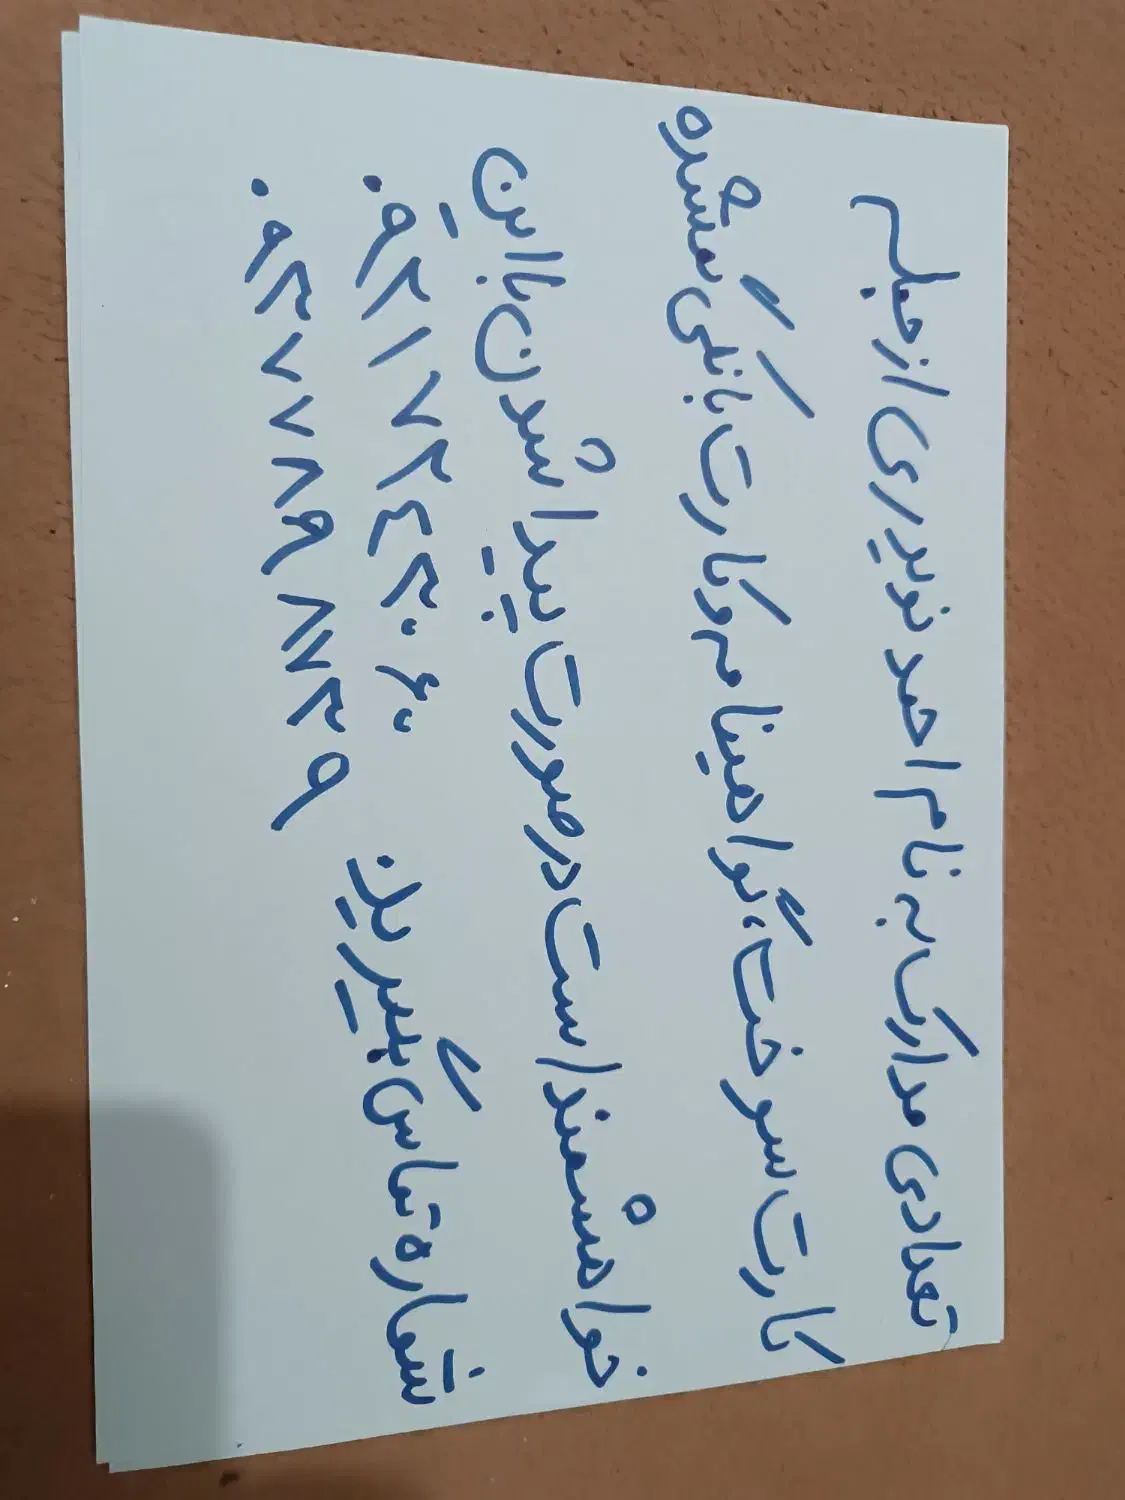 تعدادی مدارک به نام احمد نویدی از جمله
کارت سوخت، گواهینامه و کارت بانکی گمشده
خواهشمند است در صورت پیدا شدن با این
شماره تماس بگیرید ۰۹۲۱۷۲۴۳۰۶۰
۰۹۳۷۷۸۹۸۷۳۹